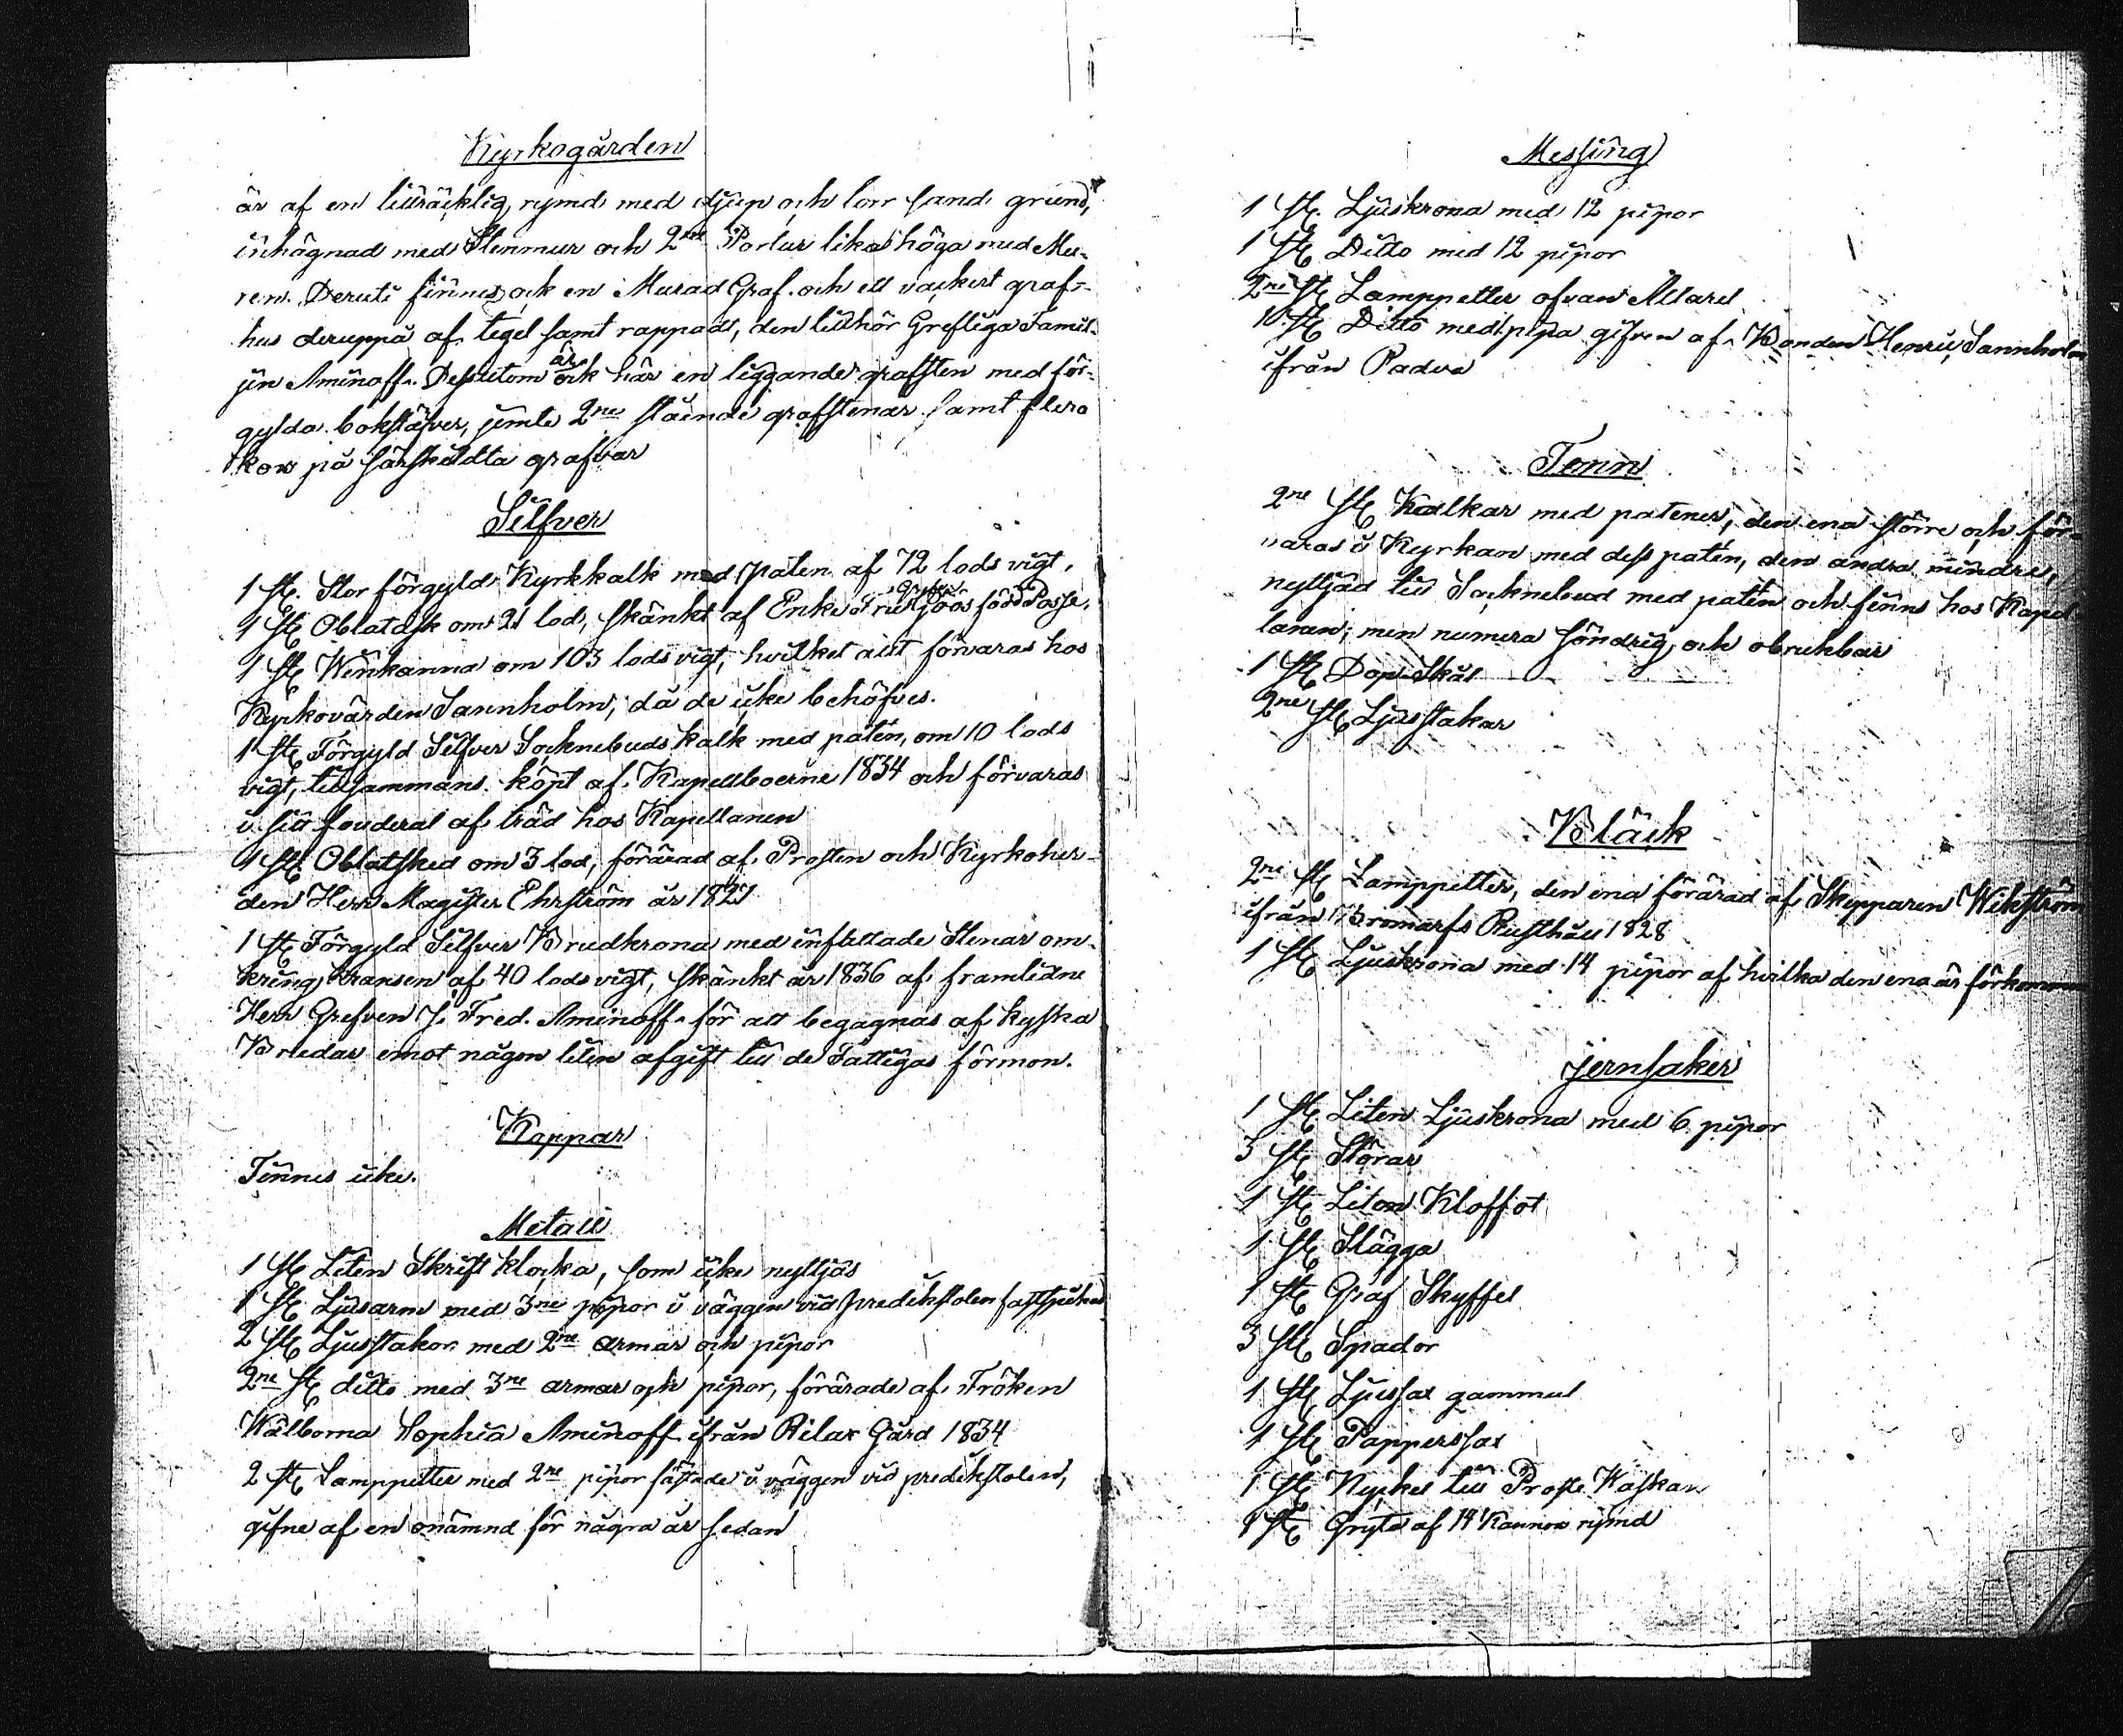 Kyrkogården
är af en tillräcklig rymd med djup och torr sand grund,
inhägnad med Stenmur och 2ne Portar lika höga med Mu-
ren. Deruti finnes ock en Murad Graf och ett vackert graf-
hus deruppå af tegel samt rappadt, den tillhör Grefliga Famil-
jen Aminoff. Dessutom är ock här en liggande grafsten med för-
gylda bokstäfver, jemte 2ne stående grafstenar samt flera
kors på särskildta grafvar
Silfver
1 st. Stor förgyld Kyrkkalk med paten af 72 lods vigt.
1 st. Oblatask om 21 lod, skänkt af Enke Fru Sjöös född Posse.
1 st. Winkanna om 103 lods vigt, hvilket allt förvaras hos
Kyrkovärden Sannholm, då de icke behöfves.
1 st. Förgyld Silfver Socknebuds kalk med patén, om 10 lods
vigt, tillsammans köpt af Kapellboerne 1834 och förvaras
i sitt fouderal af träd hos Kapellanen
1 st. Oblatsked om 3 lod, förärad af Prosten och Kyrkoher-
den Herr Magister Ehrström år 1827
1 st. Förgyld Silfver Brudkrona med infattade Stenar om-
kring kransen af 40 lods vigt, skänkt år 1836 af framlidne
Herr Grefven J. Fred. Aminoff för att begagnas af kyska
Brudar emot någon liten afgift till de Fattigas förmon.
Koppar
Finnes icke.
Metall
1 st. Liten Skrift klocka, som icke nyttjas
1 st. Ljusarm med 3ne pipor i väggen vid predikstolen fastspikad
2 st. Ljusstakor med 2ne armar och pipor
2ne st. ditto med 3ne armar och pipor, förärade af Fröken
Wälborna Sophia Aminoff ifrån Rilax Gård 1834
2 st. Lamppetter med 2ne pipor fästade i väggen vid predikstolen,
gifne af en onämnd för några år sedan
Messing
1 st. Ljuskrona med 12 pipor
1 st. Ditto med 12 pipor
2ne st. Lamppetter ofvan Altaret
1 st. Ditto med 1 pipa gifven af Bonden Henric Sannholm
ifrån Padva
Tenn
2ne st. Kalkar med patener, den ena större och för-
varas i Kyrkan med dess patén, den andra mindre,
nyttjad till Socknebud med patén och finns hos Kapel
lanen; men numera söndrig och obrukbar
1 st. Dop Skål
2ne st. Ljusstakar
Bläck
2ne st. Lamppetter, den ena förärad af Skepparen Wikström
ifrån Bromarfs Rusthåll 1828
1 st. Ljuskrona med 14 pipor af hvilka den ena är förkommen
Jernsaker
1 st. Liten Ljuskrona med 6 pipor
3 st. Störar
1 st. Liten Kloffot
1 st. Slägga
1 st. Graf Skyffel
3 st. Spador
1 st. Ljussax gammul
1 st. Papperssax
1 st. Nyckel till Proste Kaskan
1 st. Gryta af 14 Kannor rymd